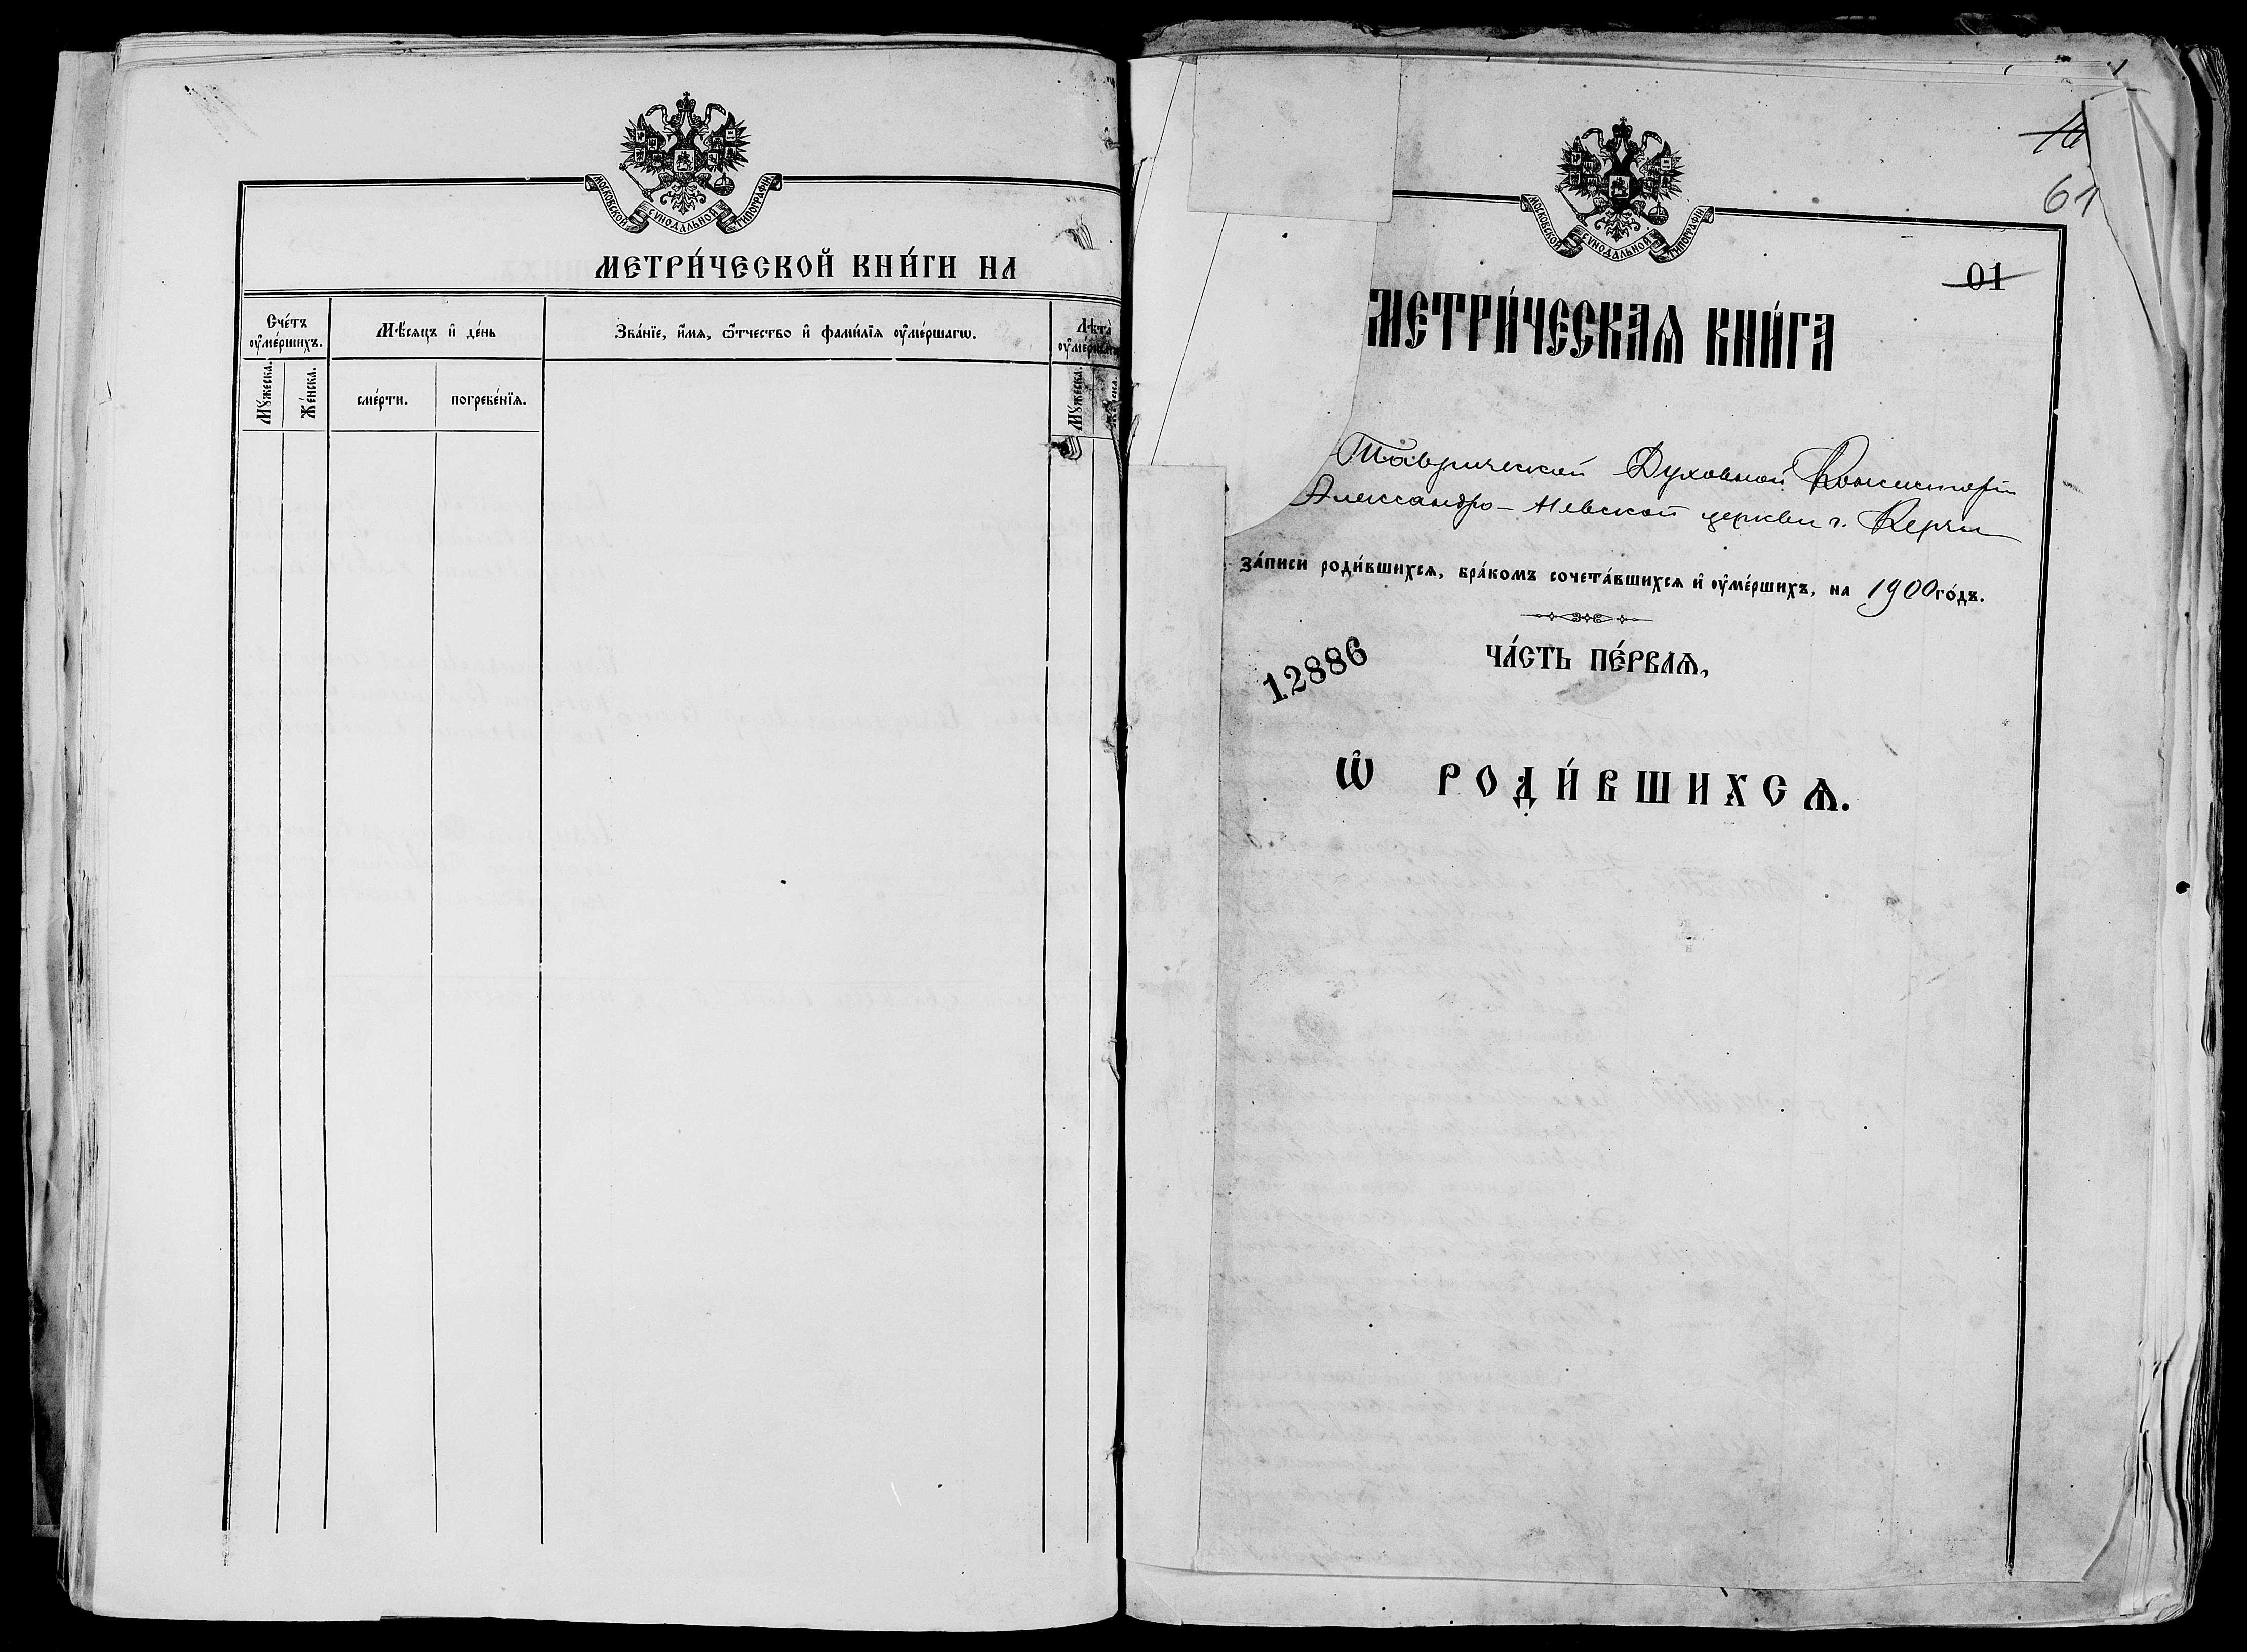 МОСКОВСКОЙ СѴНОДАЛЬНОЙ ТИПОГРАФІИ.
МЕТРИ́ЧЕСКОЙ КНИ́ГИ НА
Сче́тъ ᲂу҆ме́ршихъ.
Мѣ́сяцъ и҆ де́нь
Зва́нїе, и҆́мя, ѻ҆́тчество и҆ фами́лїя ᲂу҆ме́ршагѡ.
Лѣ́та ᲂу҆ме́ршагѡ
Мꙋ́жеска.
Же́нска.
сме́рти.
погребе́нїя.
Мꙋ́жеска.
Же́нска.
61
МОСКОВСКОЙ СѴНОДАЛЬНОЙ ТИПОГРАФІИ.
01
МЕТРИ́ЧЕСКАѦ КНИ́ГА
Таврической Духовной Консисторіи
Александро-Невской церкви г. Керчи
За́писи роди́вшихсѧ, бра́комъ сочета́вшихсѧ и҆ ᲂу҆ме́ршихъ, на 1900 го́дъ.
12886
ЧА́СТЬ ПЕ́РВАѦ,
Ѽ РОДИ́ВШИХСѦ.